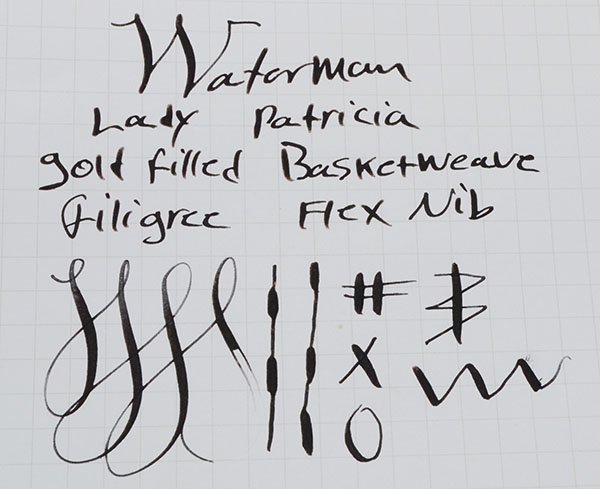 Waterman
Lady Patricia
gold filled Basketweave
Filigree Flex Nib
#
X
O